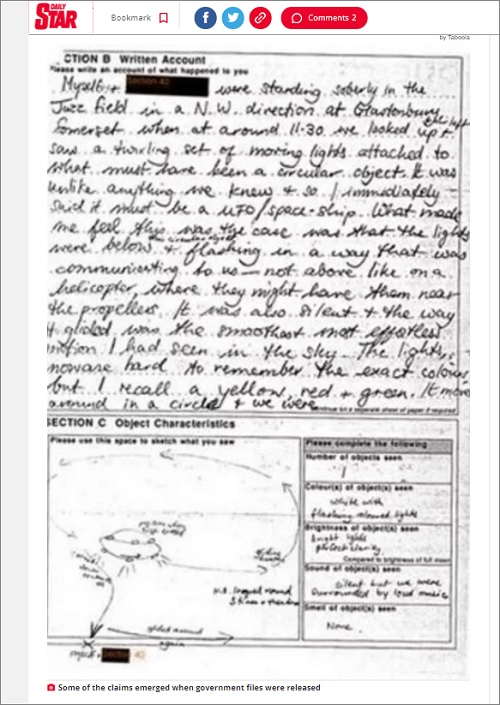 DAILY
STAR
Bookmark
Comments 2
by Taboola
CTION B Written Account
Please write an account of what happened to you
Myself + Section 40 were standing soberly in the
Jazz field in a N.W. direction at Glastonbury
Somerset when at around 11.30 we looked up to the left +
saw a twirling set of moving lights attached to
what must have been a circular object. It was
unlike anything we knew + so I immediately
said it must be a UFO/space-ship. What made
me feel this was the case was that the lights
were below + flashing in a way that was
communicating to us — not above like on a
helicopter, where they might have them near
the propellers. It was also silent + the way
it glided was the smoothest most effortless
motion I had seen in the sky. The lights,
hard to remember the exact colours
but I recall a yellow, red + green. It
around in a circle + we were
Continue on a separate sheet of paper if required
SECTION C Object Characteristics
Please use this space to sketch what you saw
Please complete the following
Number of objects seen
1
Colour(s) of object(s) seen
white with
flashing coloured lights
Brightness of object(s) seen
bright lights
perfect clarity
Compared to brightness of full moon
Sound of object(s) seen
silent but we were
surrounded by loud music
Smell of object(s) seen
None.
again
Section 40
Some of the claims emerged when government files were released